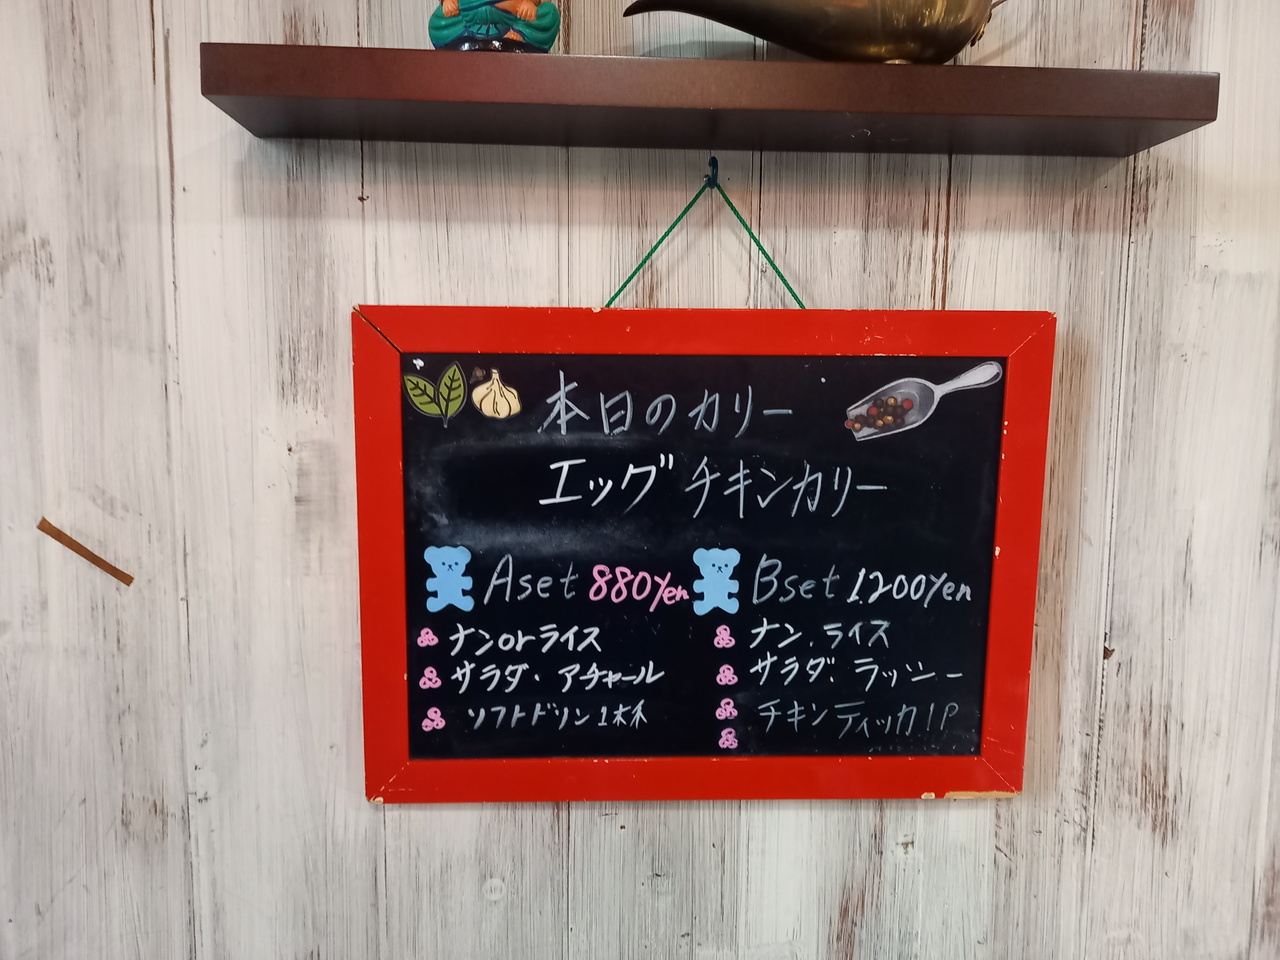 本日のカリー
エッグチキンカリー
Aset 880Yen
ナンorライス
サラダ・アチャール
ソフトドリン1杯
Bset 1.200Yen
ナン.ライス
サラダ.ラッシー
チキンティッカ1P